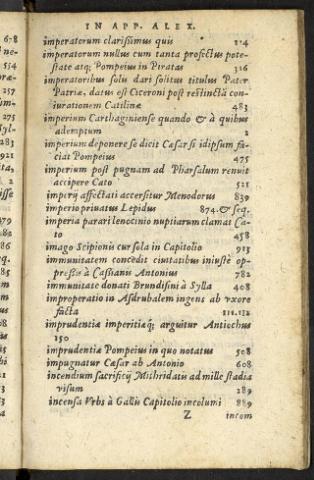 IN APP. ALEX.
imperatorum clarissimus quis 114
imperatorum nullus cum tanta profectus pote-
state atq; Pompeius in Piratas 316
imperatoribus solu dari solitus titulus Pater
Patriæ, datus est Ciceroni post restincta con
iurationem Catilinæ 483
imperium Carthaginiense quando & à quibus
ademptum 2
imperium deponere se dicit Cæsar si idipsum fa-
ciat Pompeius 475
imperium post pugnam ad Pharsalum renuit
accipere Cato 521
imperij affectati accersitur Menodorus 839
imperio priuatus Lepidus 874. & seq.
imperia parari lenocinio nuptiarum clamat Ca-
to 458
imago Scipionis cur sola in Capitolio 913
immunitatem concedit ciuitatibus iniustè op-
pressis à Cassianis Antonius 782
immunitate donati Brundisini à Sylla 408
improperatio in Asdrubalem ingens ab vxore
facta 111.132
imprudentiæ imperitiæq; arguitur Antiochus
150
imprudentiæ Pompeius in quo notatus 508
impugnatur Cæsar ab Antonio 608
incendium sacrificij Mithridatis ad mille stadia
visum 289
incensa Vrbs à Gallis Capitolio incolumi 889
Z incom
678
ne-
554
præ-
257
im-
275
Syl-
283
921
ita-
2
isse
379
82
86
sq.
85
m
85
us
58
us
08
is
bi
65
as
51
13
13
4